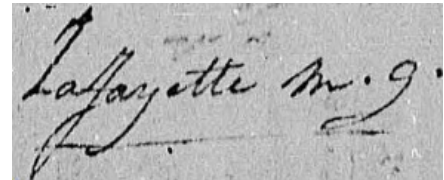 Lafayette m. g.